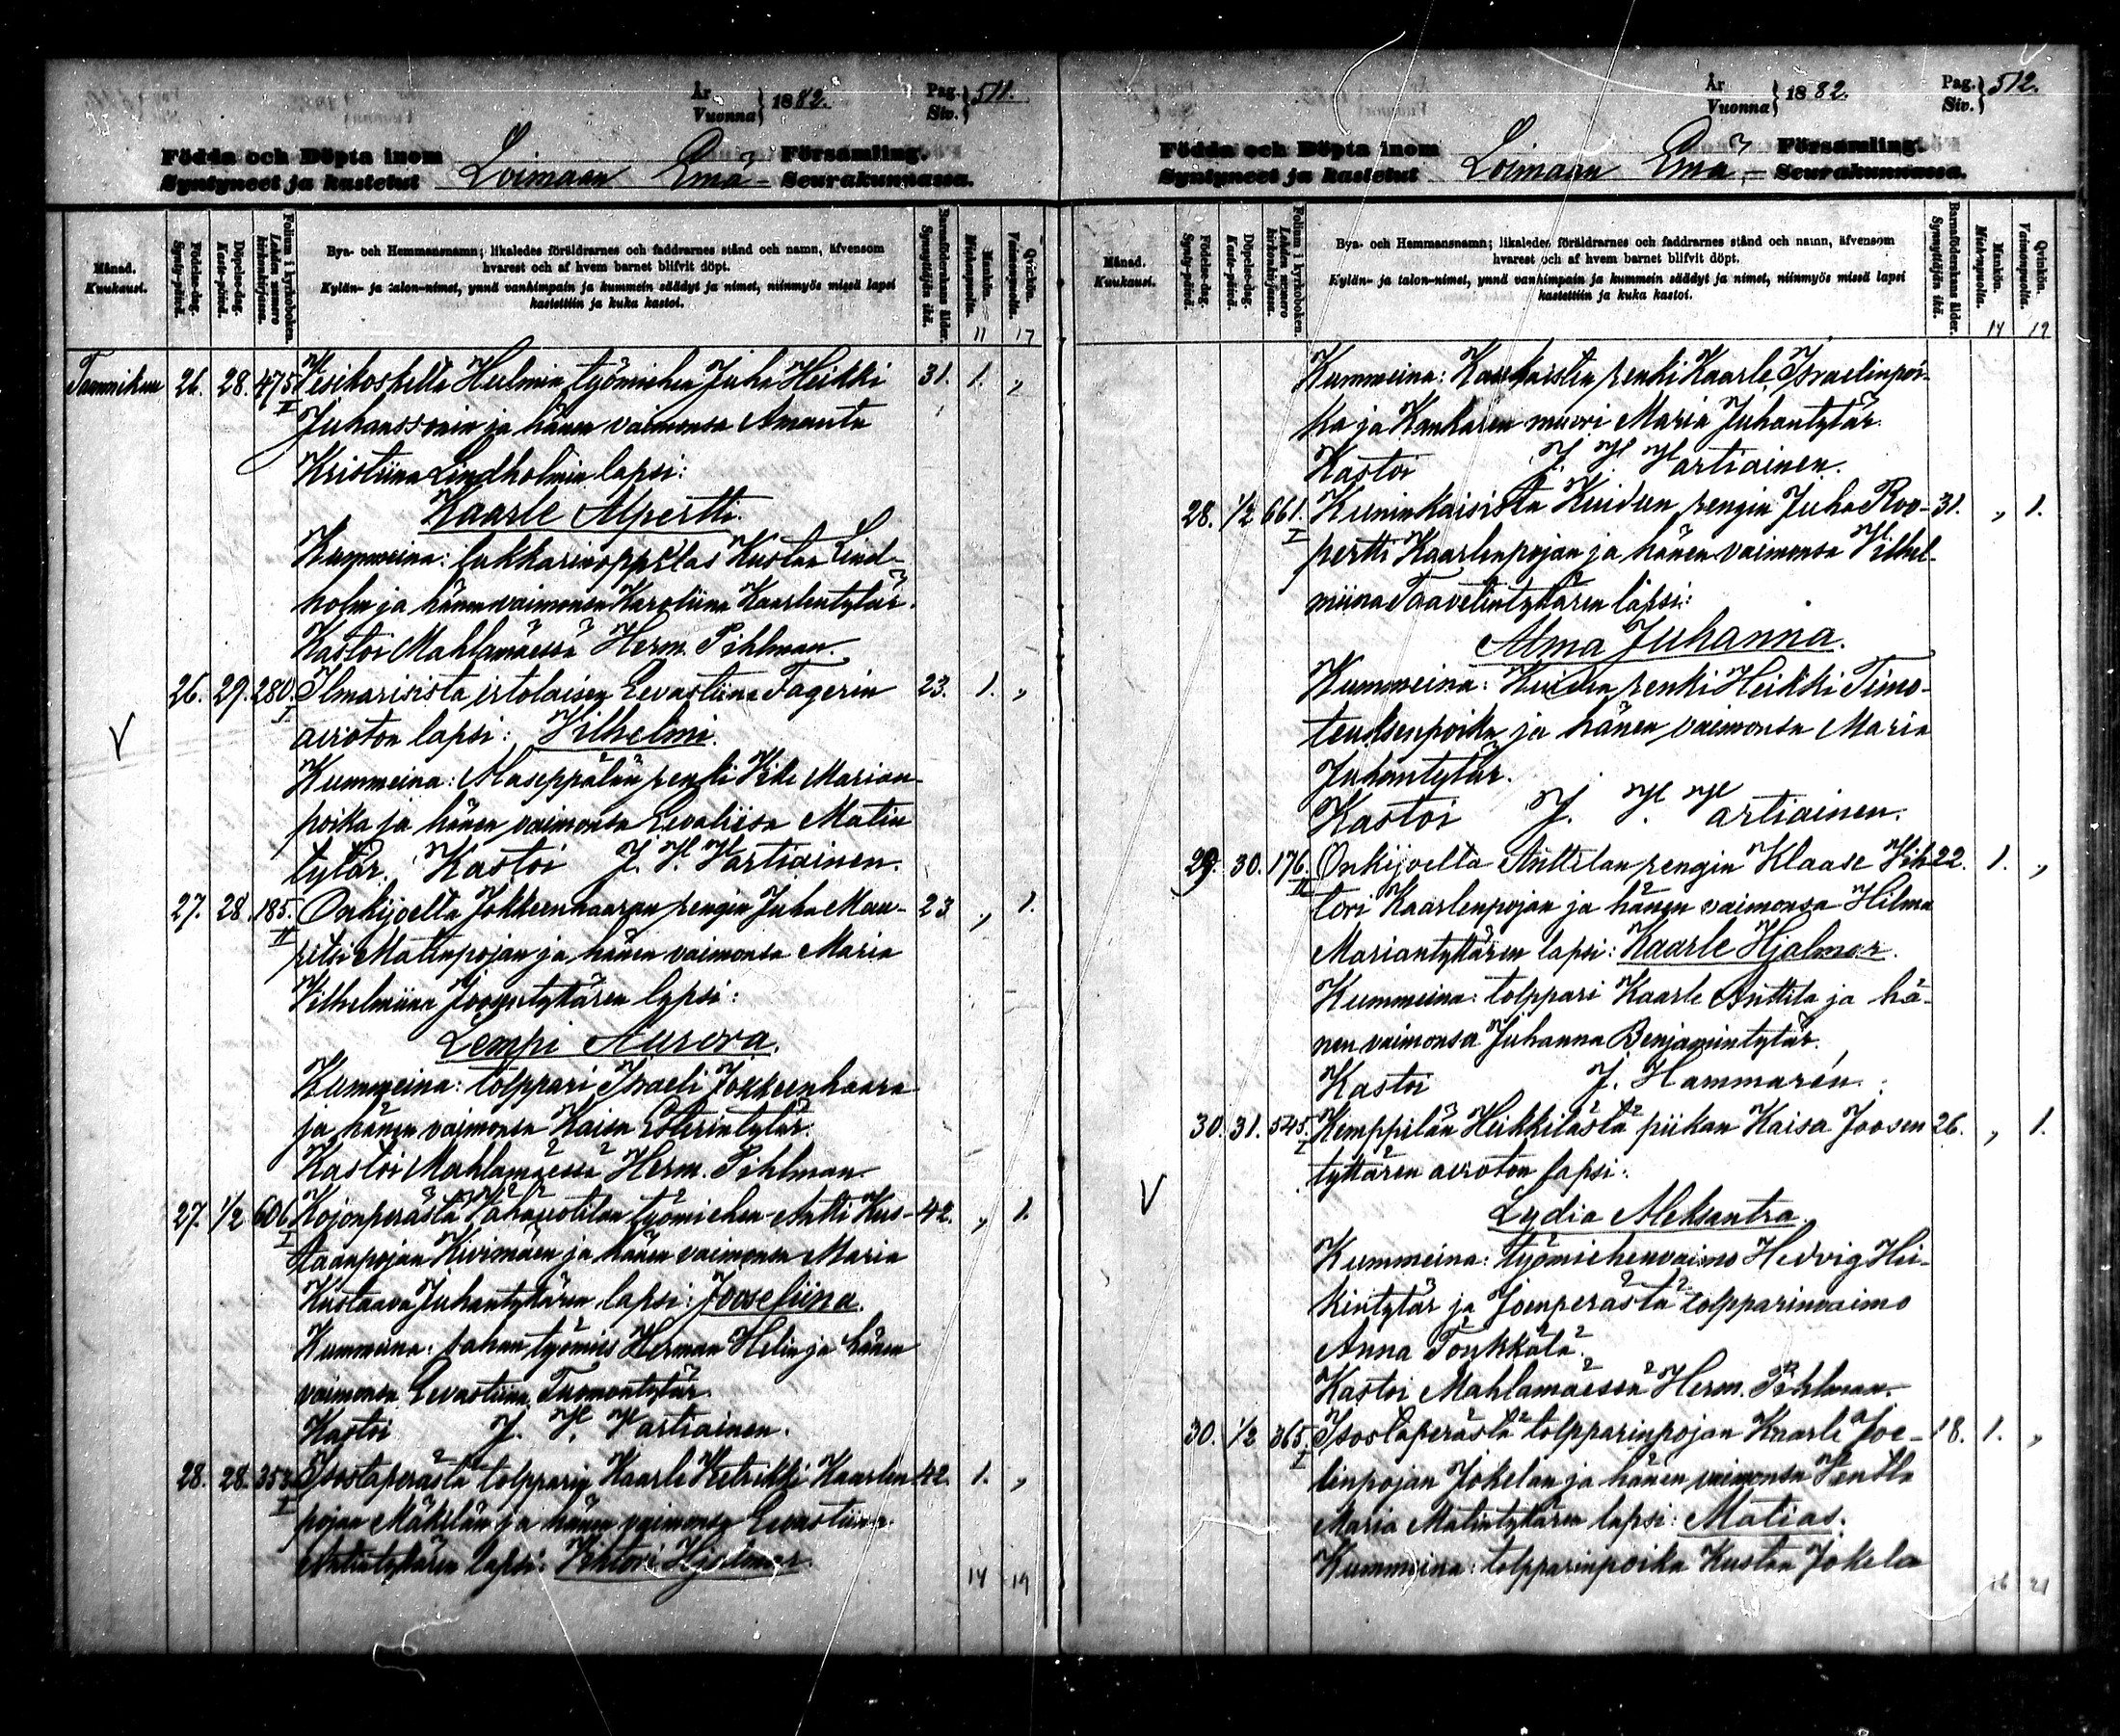 År
Vuonna} 1882.
Pag.
Siv.} 511.
Födda och Döpta inom
Syntyneet ja kastetut
Loimaan Emä-
Församling.
Seurakunnassa.
Månad.
Kuukausi.
Födelse-dag.
Synty-päivä.
Döpelse-dag.
Kaste-päivä.
Folium i kyrkoboken.
Lehden numero kirkonkirjassa.
Bya- och Hemmansnamn; likaledes föräldrarnes och faddrarnes stånd och namn, äfvensom
hvarest och af hvem barnet blifvit döpt.
Kylän- ja talon-nimet, ynnä vanhimpain ja kummein säädyt ja nimet, niinmyös missä lapsi
kastettiin ja kuka kastoi.
Barnaföderskans ålder.
Synnyttäjän ikä.
Mankön.
Miehenpuolia.
Qvinkön.
Vaimonpuolia.
11 17
Tammikuu 26. 28. 475 II Vesikoskelta Helmin työmiehen Juha Heikki 31. 1. „
Juhanssonin ja hänen vaimonsa Amanta
Kristiina Lindholmin lapsi:
Kaarle Alpertti.
Kummeina: Lukkarinoppilas Kustaa Lind-
holm ja hänen vaimonsa Karoliina Kaarlentytär.
Kastoi Mahlamäessä Herm. Pihlman.
26. 29. 280. I Ilmarisista irtolaisen Eevastiina Fagerin 23. 1. „
avioton lapsi: Vilhelmi.
Kummeina: Alaseppälän renki Ville Marian-
poika ja hänen vaimonsa Eevaliisa Matin
tytär. Kastoi J. V. Vartiainen.
27. 28. 185. II Onkijoelta Jokkeenhaaran rengin Juha Mau- 23 „ 1.
ritsi Matinpojan ja hänen vaimonsa Maria
Vilhelmiina Joosentyttären lapsi:
Lempi Aurora.
Kummeina: tolppari Israeli Jokkeenhaara
ja hänen vaimonsa Kaisa Esterintytär.
Kastoi Mahlamäessä Herm. Pihlman.
27. 1/2 606. I Kojonperästä Vähäuotilan työmiehen Antti Kus- 42. „ 1.
taanpojan Kivimäen ja hänen vaimonsa Maria
Kustaava Juhantyttären lapsi: Joosefiina.
Kummeina: sahan työmies Herman Helin ja hänen
vaimonsa Eevastiina Tuomontytär.
Kastoi J. V. Vartiainen.
28. 28. 353. I Isostaperästä tolpparin Kaarle Vetrikki Kaarlen- 42. 1. „
pojan Mäkelän ja hänen vaimonsa Eevastiina
Antintyttären lapsi: Vihtori Hjalmar.
14 19
År
Vuonna} 1882.
Pag.
Siv.} 512.
Födda och Döpta inom
Syntyneet ja kastetut
Loimaan Emä-
Församling.
Seurakunnassa.
Månad.
Kuukausi.
Födelse-dag.
Synty-päivä.
Döpelse-dag.
Kaste-päivä.
Folium i kyrkoboken.
Lehden numero kirkonkirjassa.
Bya- och Hemmansnamn; likaledes föräldrarnes och faddrarnes stånd och namn, äfvensom
hvarest och af hvem barnet blifvit döpt.
Kylän- ja talon-nimet, ynnä vanhimpain ja kummein säädyt ja nimet, niinmyös missä lapsi
kastettiin ja kuka kastoi.
Barnaföderskans ålder.
Synnyttäjän ikä.
Mankön.
Miehenpuolia.
Qvinkön.
Vaimonpuolia.
14 19
Kummeina: renki Kaarle Israelinpoi-
ka ja Kankaren muori Maria Juhantytär.
Kastoi J. V. Vartiainen.
28. 1/2 661. I Kuninkaisista Uudun rengin Juha Roo- 31. „ 1.
pertti Kaarlenpojan ja hänen vaimonsa Vilhel-
miina Taavetintyttären lapsi:
Alma Juhanna.
Kummeina: renki Heikki Timo-
teuksenpoika ja hänen vaimonsa Maria
Juhantytär.
Kastoi J. V. Vartiainen.
29. 30. 176. II Onkijoelta Anttilan rengin Klaase Vih- 22. 1. „
tori Kaarlenpojan ja hänen vaimonsa Hilma
Mariantyttären lapsi: Kaarle Hjalmar.
Kummeina: tolppari Kaarle Anttila ja hä-
nen vaimonsa Juhanna Benjamintytär.
Kastoi J. Hammarén.
30. 31. 545. I Kemppilän Heikkilästä piikan Kaisa Joosen 26. „ 1.
tyttären avioton lapsi:
Lydia Aleksantra.
Kummeina: työmiehenvaimo Hedvig Hei-
kintytär ja Joenperästä tolpparinvaimo
Anna Tonkkala.
Kastoi Mahlamäessä Herm. Pihlman.
30. 1/2 365. I Isostaperästä tolpparinpojan Kaarle Joe- 18. 1. „
linpojan Jokelan ja hänen vaimonsa Vendla
Maria Matintyttären lapsi: Matias.
Kummeina: tolpparinpoika Kustaa Jokela
16 21